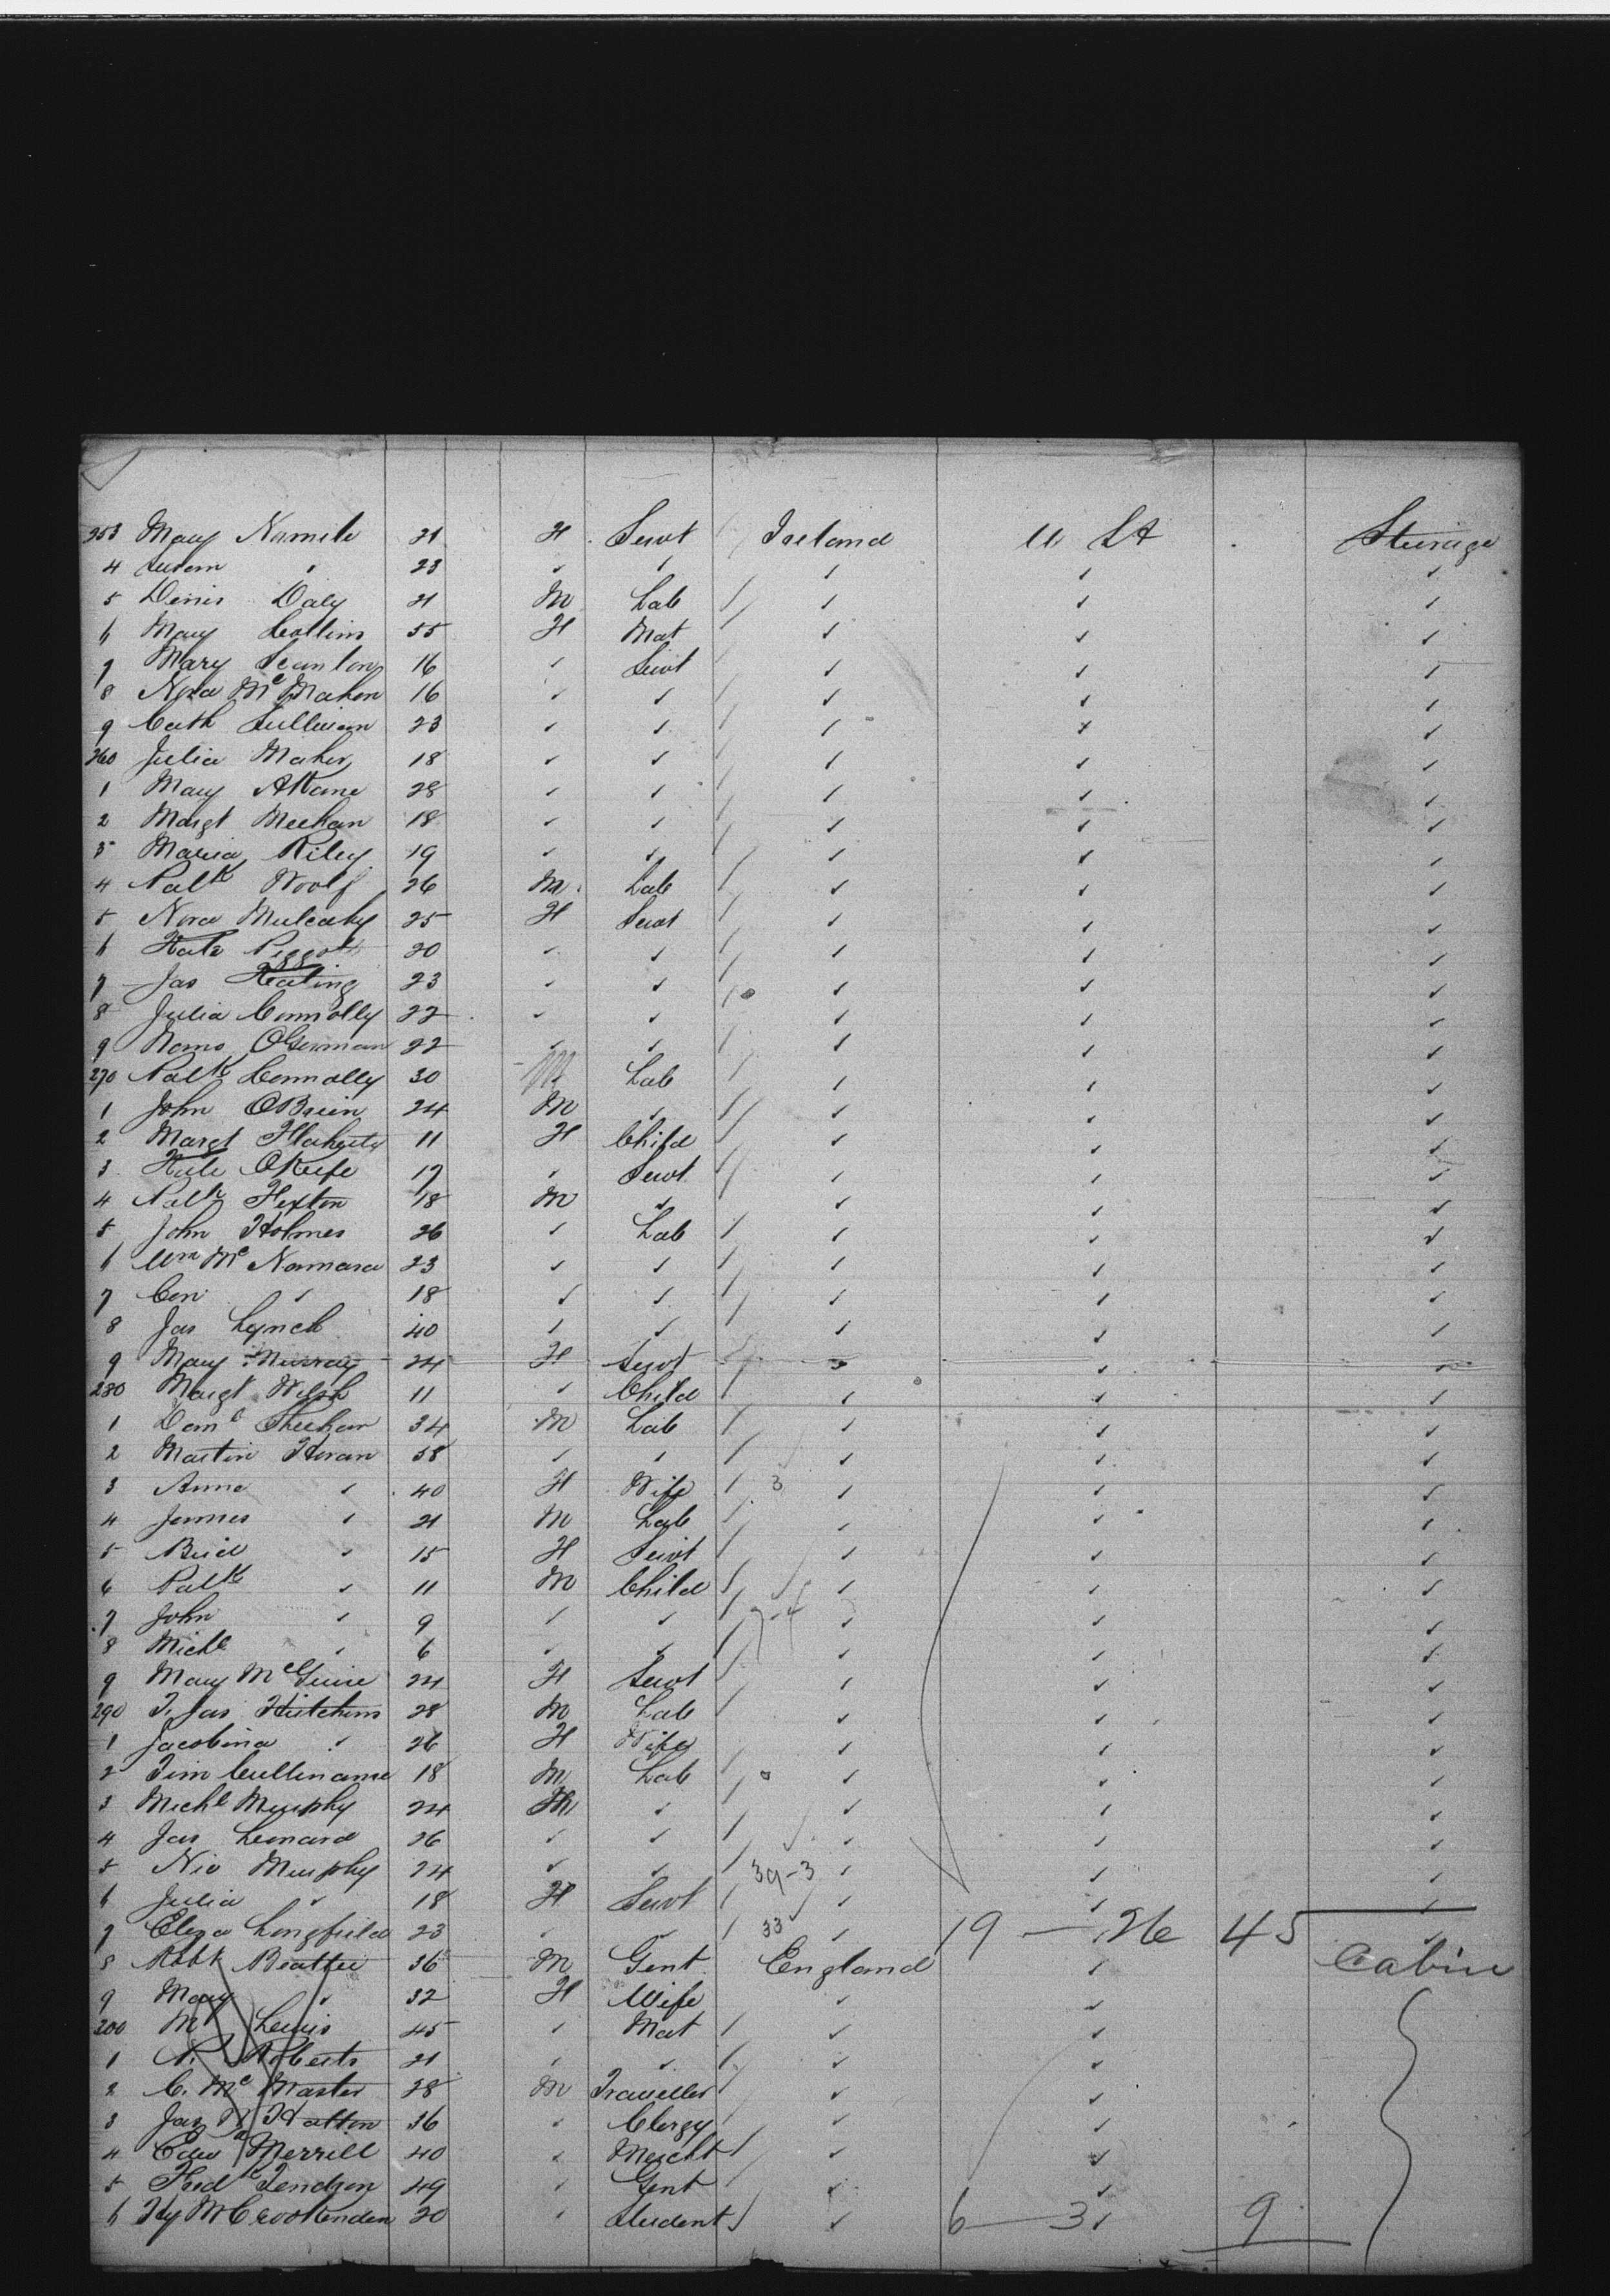 253 Mary Namile 21 F Servt Ireland U St Steerage
4 Susan " 23
5 Denis Daly 21 M Lab
6 Mary Collins 55 F Mat
7 Mary Scanlon 16 Servt
8 Nora McMahon 16
9 Cath Sullivan 23
260 Julia Maher 18
1 Mary Akane 28
2 Margt Meehan 18
3 Maria Riley 19
4 Patk Woolf 26 M Lab
5 Nora Mulcahy 25 F Servt
6 Kate Piggott 20
7 Jas Keating 23
8 Julia Connolly 22
9 OGorman 22
270 Patk Connolly 30 M Lab
1 John OBrien 24 M
2 Margt Flaherty 11 F Child
3 Kate OKeefe 17 Servt
4 Patk Hexton 18 M
5 John Holmes 26 Lab
6 Wm McNamara 23
7 Con 18
8 Jas Lynch 40
9 Mary Murray 24 F Servt
280 Margt Welsh 11 Child
1 Danl Sheehan 34 M Lab
2 Martin Horan 58
3 Anne 40 F Wife 3
4 James 21 M Lab
5 Brid 15 F Servt
6 Patk 11 M Child
7 John 9 7-4
8 Michl 6
9 Mary McGuire 24 F Servt
290 T. Jas Hutchins 28 M Lab
1 Jacobina 26 F Wife
2 Tim Cullinane 18 M Lab
3 Michl Murphy 24 M
4 Jas Leonard 26
5 Nic Murphy 24 39-3
6 Julia 18 F Servt
7 Eliza Longfield 23 33 19 — 26 45
8 Robt Beattie 36 M Gent England Cabin
9 Mary 32 F Wife
200 M Lewis 45 Mat
1 Roberts 21
2 C. McMaster 28 M Traveller
3 Jas Hatton 36 Clergy
4 Edwd Merrill 40 Mercht
5 Fredk 49 Gent
6 Hy M Crookenden 20 Student 6 — 3 9